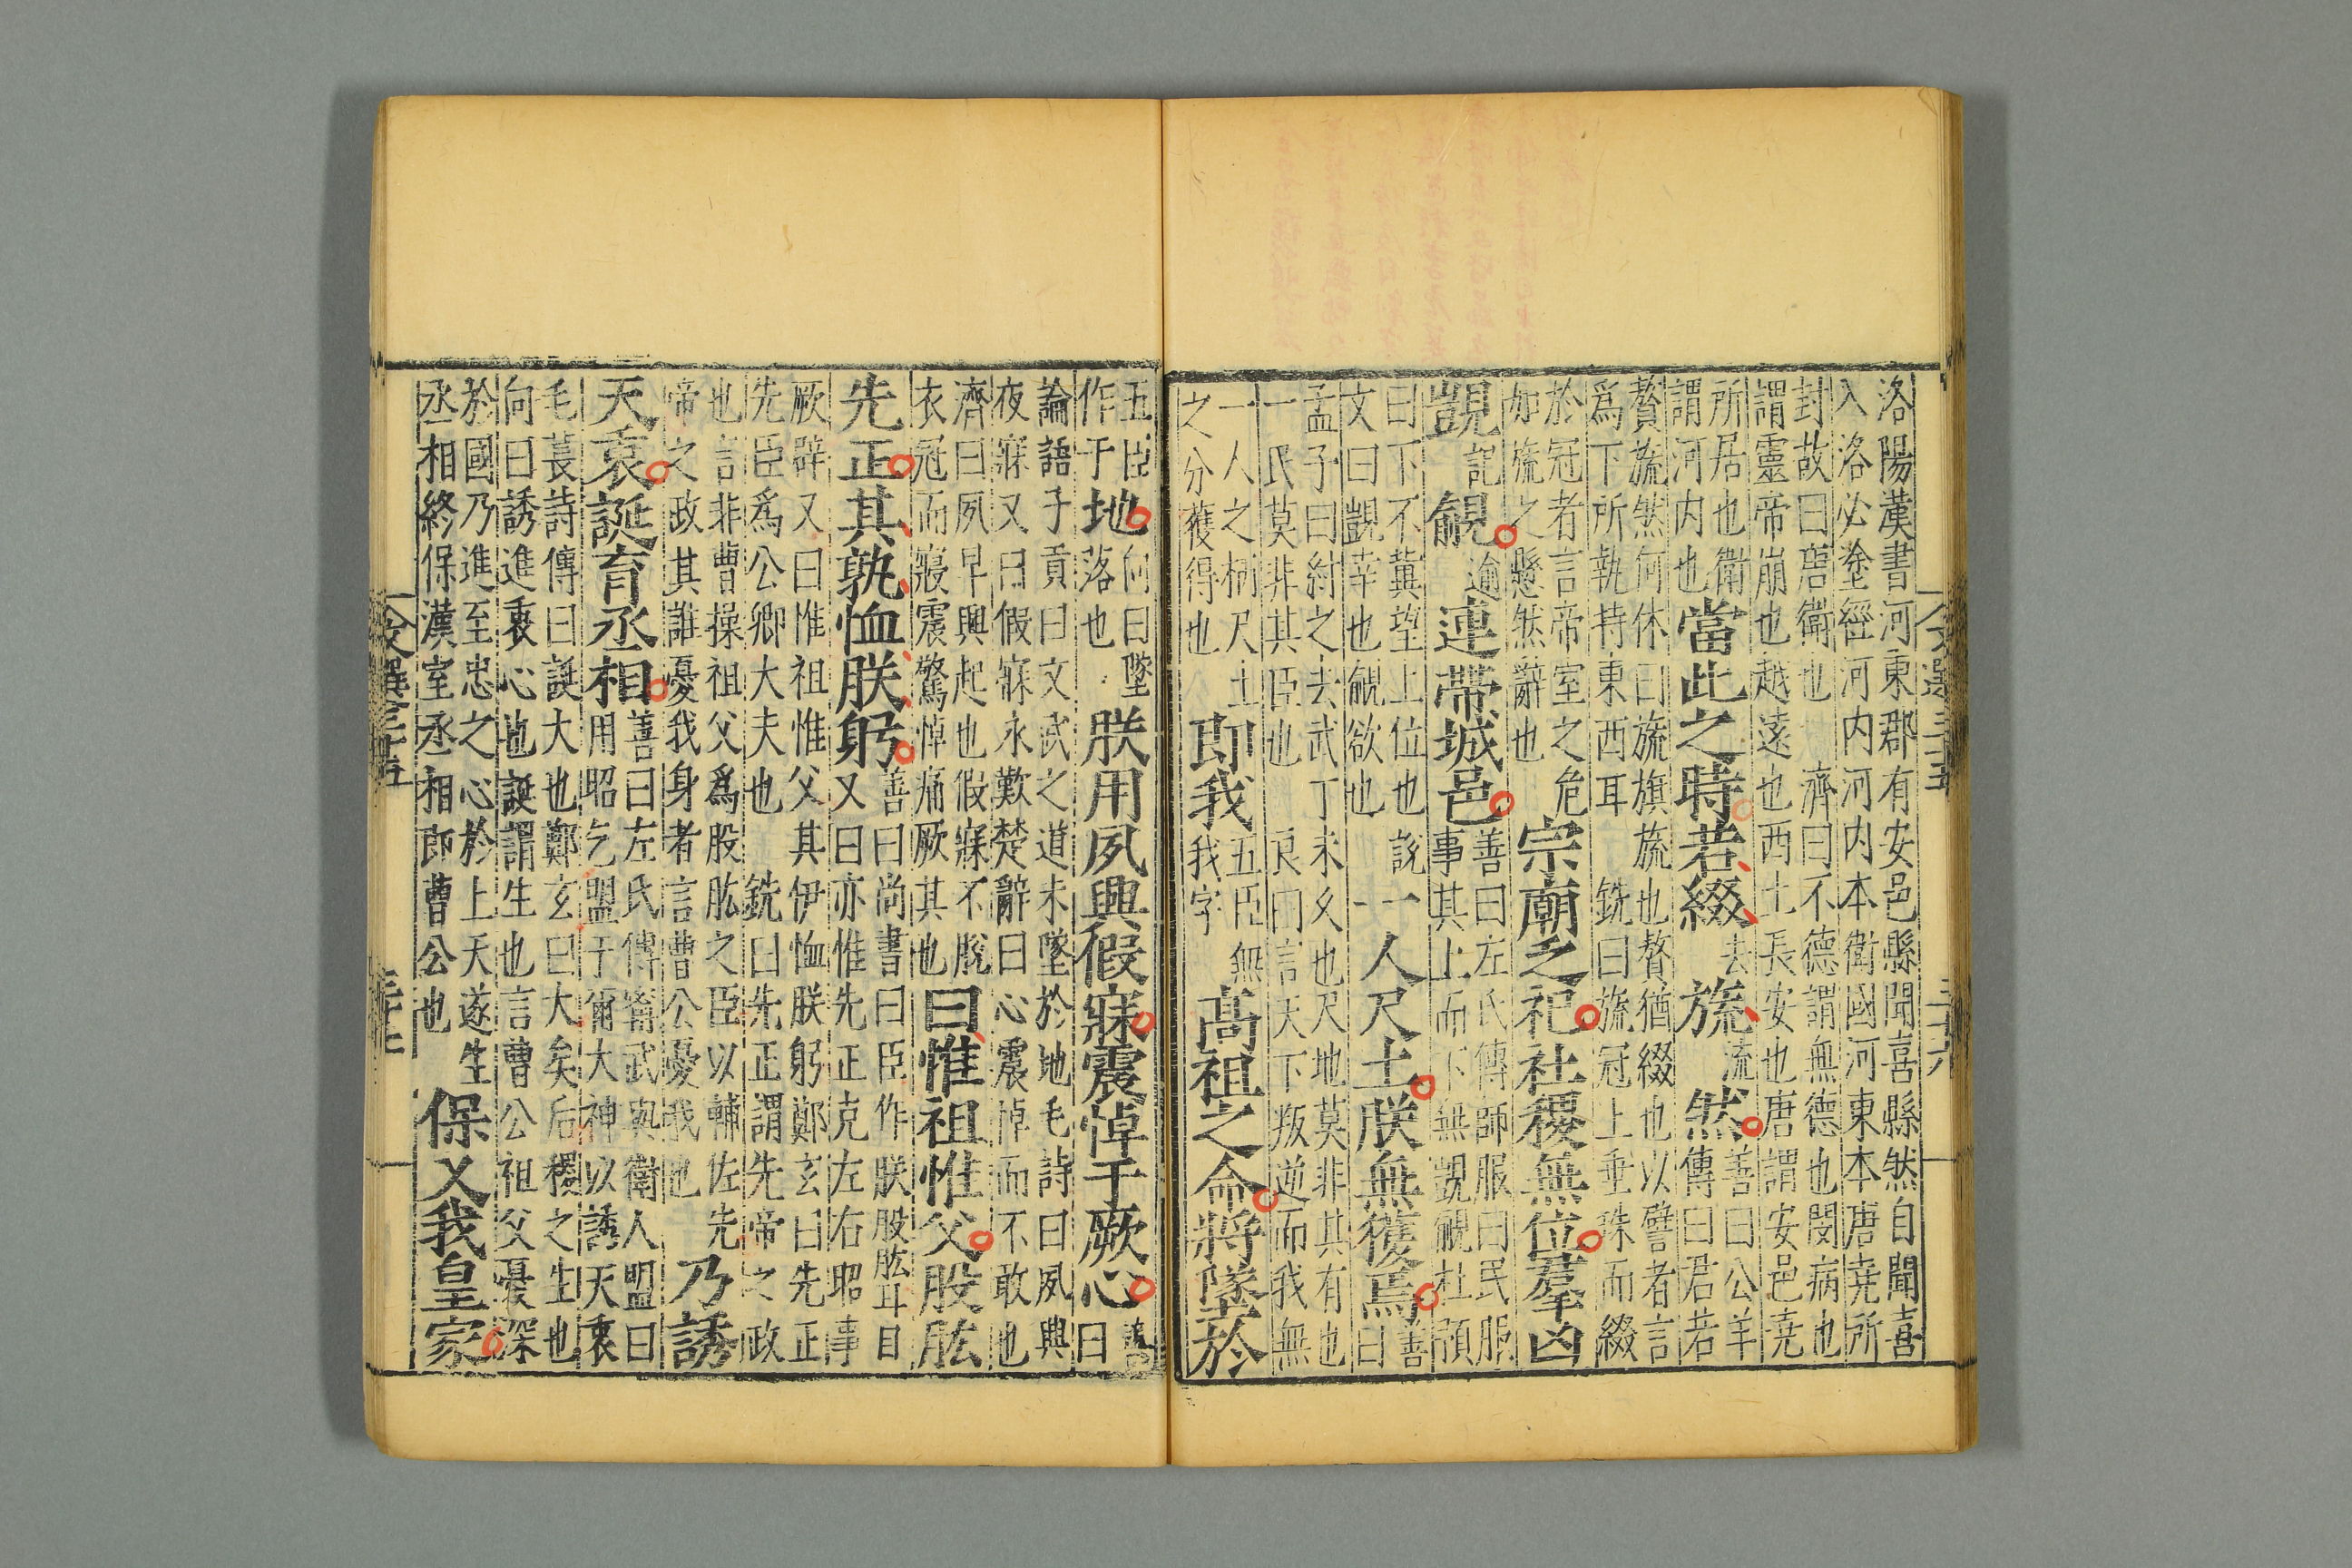 文選三十五
三十六
洛陽漢書河東郡有安邑縣聞喜縣然自聞喜
入洛必塗經河内河内本衛國河東本唐堯所
封故曰唐衛也 濟曰不德謂無德也閔病也
謂靈帝崩也越遠也西土長安也唐謂安邑堯
所居也衛
謂河内也
當此之時若綴去旒流然
善曰公羊
傳曰君若
贅旒然何休曰旒旗旒也贅猶綴也以譬者言
爲下所執持東西耳 銑曰旒冠上垂珠而綴
於冠者言帝室之危
如旒之懸然辭也
宗廟乏祀社稷無位羣凶
覬記覦逾連帶城邑
善曰左氏傳師服曰民服
事其上而下無覬覦杜預
曰下不冀望上位也 説
文曰覬幸也覦欲也
一人尺土朕無獲焉
善
曰
孟子曰紂之去武丁未久也尺地莫非其有也
一民莫非其臣也 良曰言天下叛逆而我無
一人之柄尺土
之分獲得也
即我
五臣無
我字
高祖之命將墜於
五臣
作于
地
向曰墜
落也
朕用夙興假寐震悼于厥心
善
曰
論語子貢曰文武之道未墜於地毛詩曰夙興
夜寐又曰假寐永歎楚辭曰心震悼而不敢也
濟曰夙早興起也假寐不脫
衣冠而寢震驚悼痛厥其也
曰惟祖惟父股肱
先正其孰恤朕躬
善曰尚書曰臣作朕股肱耳目
又曰亦惟先正克左右昭事
厥辟又曰惟祖惟父其伊恤朕躬鄭玄曰先正
先臣爲公卿大夫也 銑曰先正謂先帝之政
也言非曹操祖父爲股肱之臣以輔佐先
帝之政其誰憂我身者言曹公憂我也
乃誘
天衷誕育丞相
善曰左氏傳甯武與衛人盟曰
用昭乞盟于爾大神以誘天衷
毛萇詩傳曰誕大也鄭玄曰大矣后稷之生也
向曰誘進衷心也誕謂生也言曹公祖父憂深
於國乃進至忠之心於上天遂生
丞相終保漢室丞相即曹公也
保乂我皇家
文選三十五